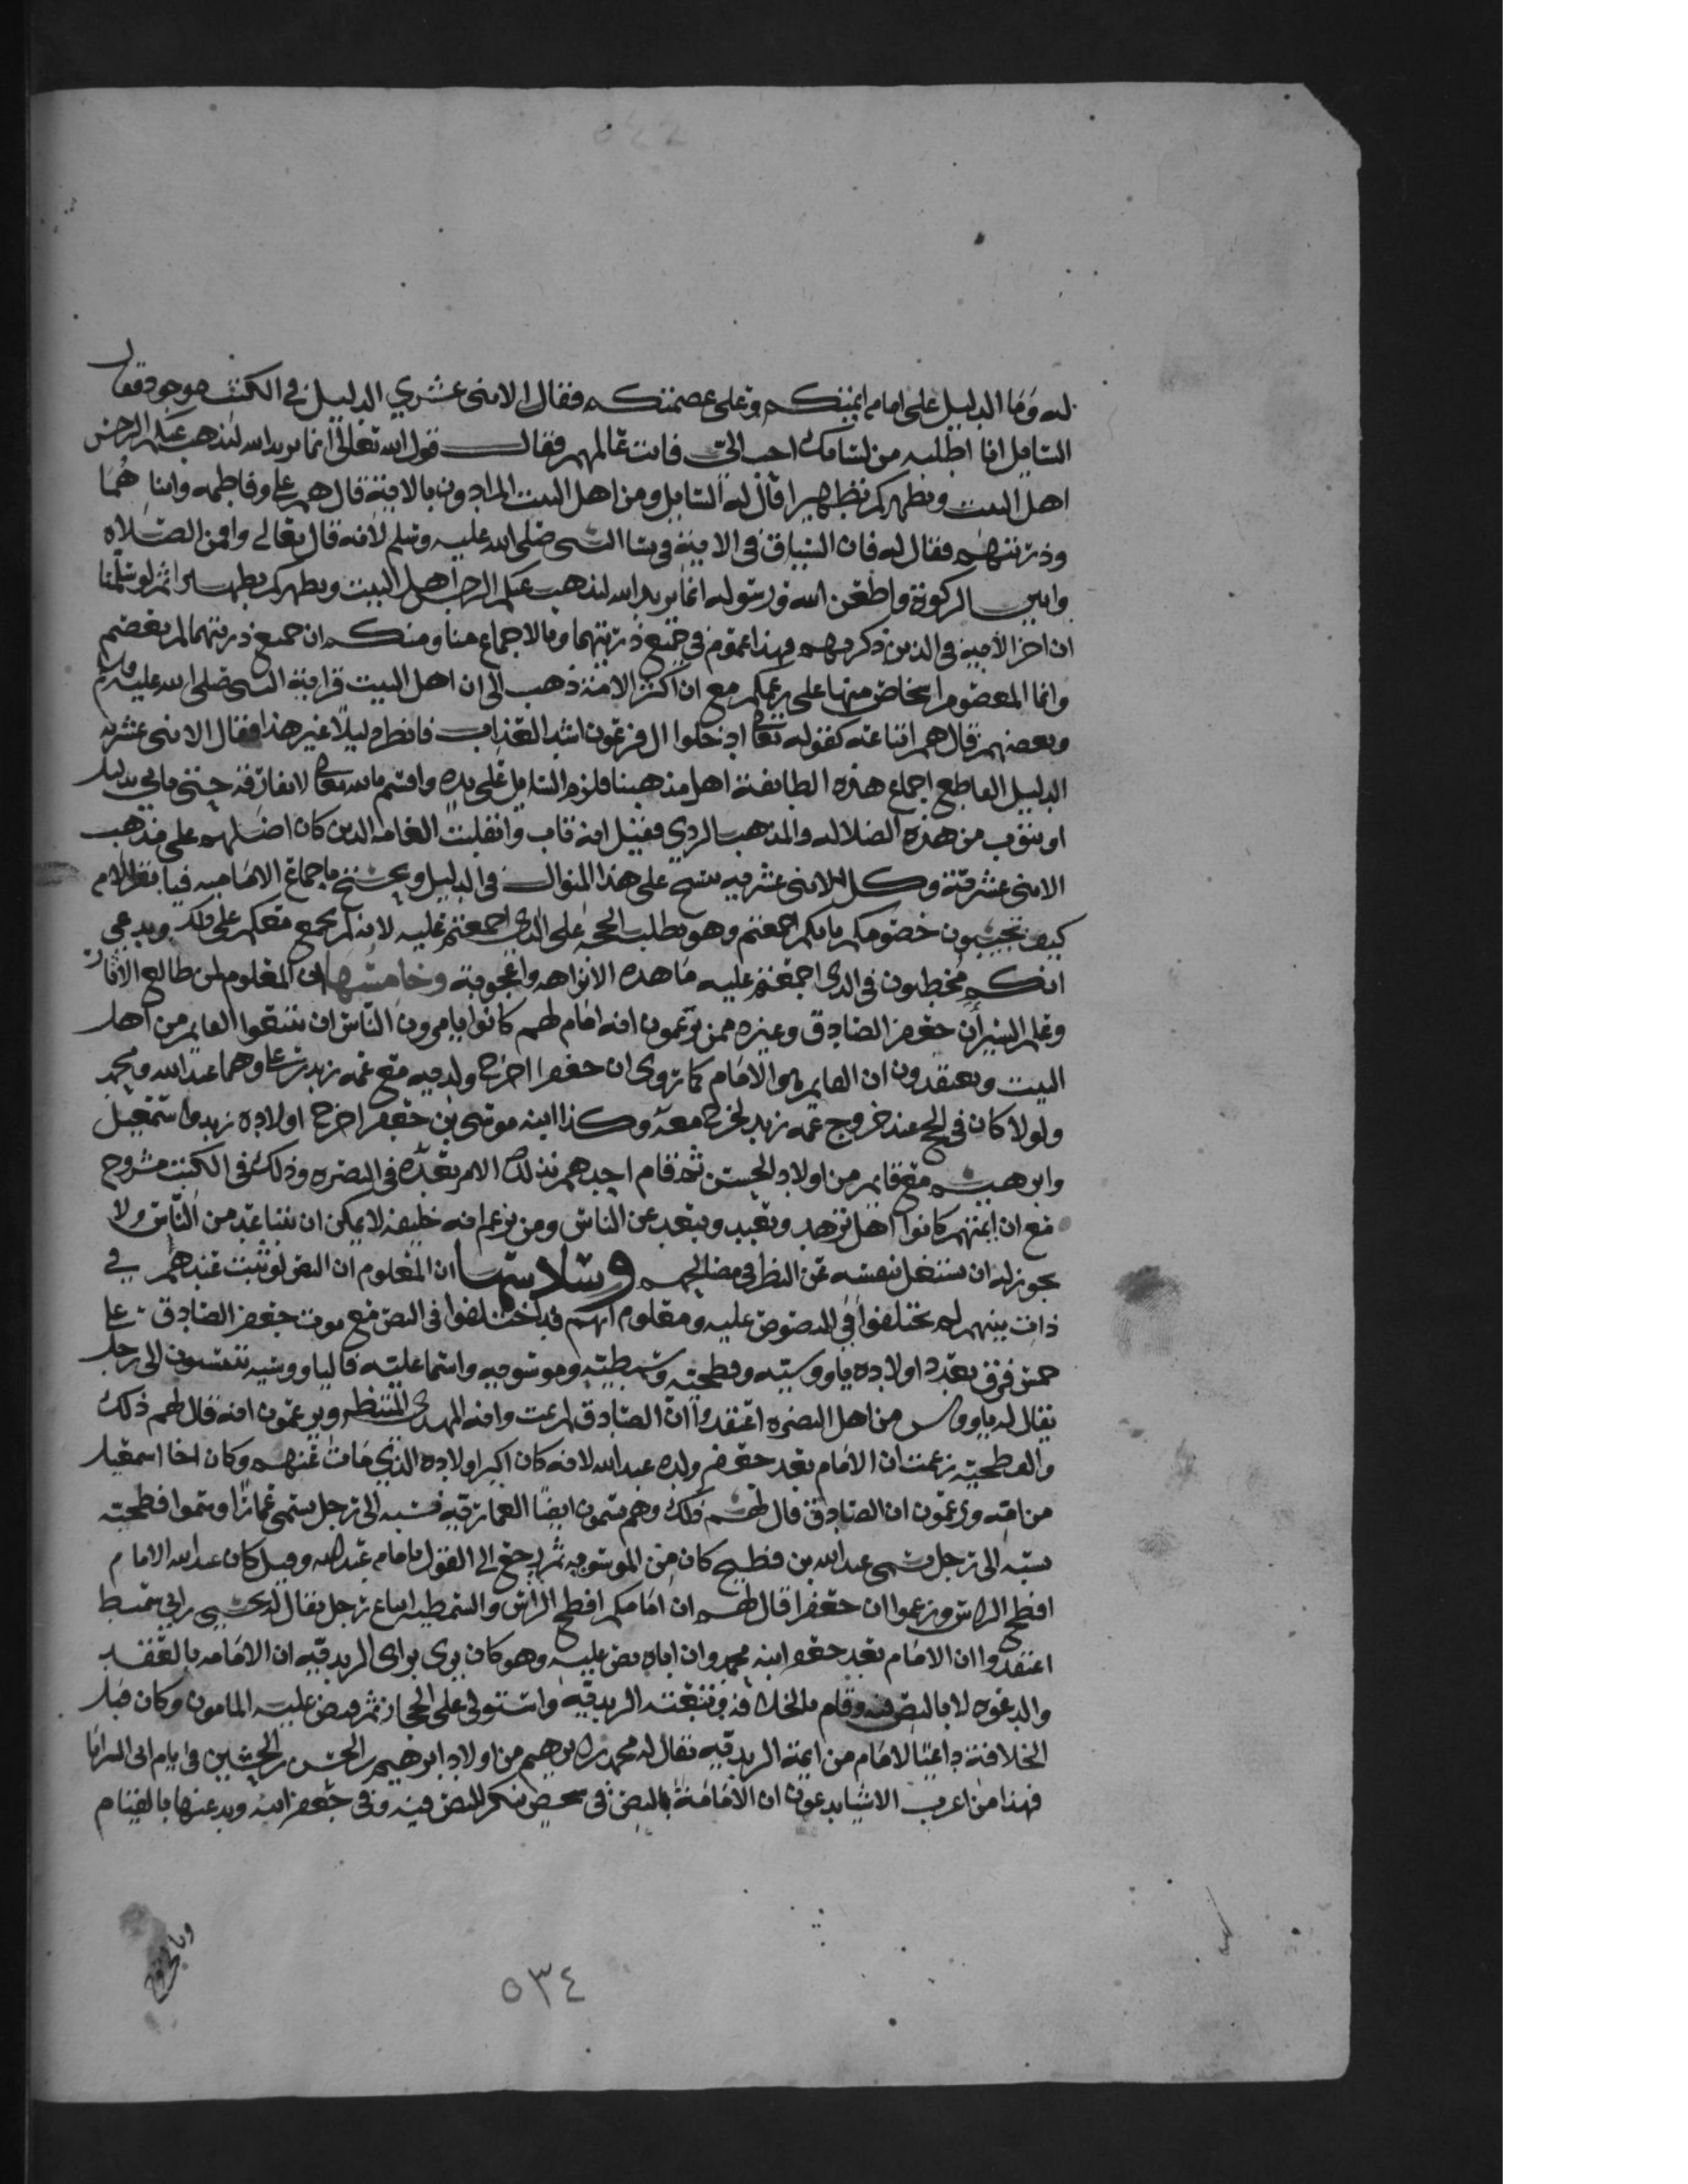 له وما الدليل على امام ايمتكم وعلى عصمتكم فقال الاثنى عشري الدليل في الكتب موجود فقال
السايل انا اطلبه من لسانك احب الي فانت عالمهم فقال قول الله تعالى انما يريد الله ليذهب عنكم الرجس
اهل البيت ويطهركم تطهيرا قال له السايل ومن اهل البيت المرادون بالاية قال هم علي وفاطمه وابناهما
وذريتهم فقال له فان السياق في الاية في نسا النبي صلى الله عليه وسلم لانه قال تعالى واقمن الصلاه
واتين الزكوة واطعن الله ورسوله انما يريد الله ليذهب عنكم الرجس اهل البيت ويطهركم تطهيرا ثم لو سلمنا
ان اخر الاية في الذين ذكرتهم فهذا عموم في جميع ذريتهما وبالاجماع منا ومنكم ان جميع ذريتهما لم يعصم
وانما المعصوم اشخاص منها على زعمكم مع ان اكثر الامة ذهب الى ان اهل البيت قرابة النبي صلى الله عليه وسلم
وبعضهم قال هم اتباعه كقوله تعالى ادخلوا ال فرعون اشد العذاب فانظر دليلا غير هذا فقال الاثنى عشريه
الدليل القاطع اجماع هذه الطايفة اهل مذهبنا فلزم السايل على يده واقسم بالله تعالى لا يفارقه حتى ياتي بدليل
او يتوب من هذه الضلاله والمذهب الردي فقيل انه تاب وانفلت العامه الذين كان اضلهم على مذهب
الاثنى عشرية وكل الاثنى عشريه ينسج على هذا المنوال في الدليل ويحتج باجماع الاماميه فيا
كيف تجيبون خصومكم بانكم اجمعتم وهو يطلب الحجه على الذي اجمعتم عليه لانه لم يجمع معكم على ذلك ويدعي
انكم مخطيون في الذي اجمعتم عليه ما هذه الا واعجوبة وخامسها ان المعلوم لمن طالع الاثار
وعلم السير أن جعفر الصادق وغيره ممن يزعمون انه امام لهم كانوا يامرون الناس ان يتبعوا القايم من اهل
البيت ويعتقدون ان القايم هو الامام كما روى ان جعفرا اخرج ولديه مع عمه زيد بن علي وهما عبد الله ومحمد
ولولا كان في الحج عند خروج عمه زيد لخرج معه وكذا ابنه موسى بن جعفر اخرج اولاده زيد واسمعيل
وابرهيم مع قايم من اولاد الحسن ثم قام احدهم بذلك الامر بعده في البصره وذلك في الكتب مشروح
مع ان ايمتهم كانوا اهل تزهد وتعبد وتبعد عن الناس ومن يزعم انه خليفه لا يمكن ان يتباعد من الناس ولا
يجوز له ان يشتغل بنفسه عن النظر في مصالحهم وسادسها ان المعلوم ان النص لو ثبت عندهم في
ذات بينهم لم يختلفوا في المنصوص عليه ومعلوم انهم قد اختلفوا في النص مع موت جعفر الصادق على
خمس فرق بعدد اولاده ياووسيه وفطحيه وشمطيه وموسويه واسماعليه فالياووسيه ينتسبون الى رجل
يقال له ياووس من اهل البصره اعتقدوا ان الصادق لم يمت وانه المهدي المنتظر ويزعمون انه قال لهم ذلك
والفطحيه زعمت ان الامام بعد جعفر ولده عبد الله لانه كان اكبر اولاده الذي مات عنهم وكان اخا اسمعيل
من امه ويزعمون ان الصادق قال لهم ذلك وهم يسمون ايضا العمارية نسبه الى رجل يسمى عمارا وسموا فطحيه
نسبه الى رجل يسمى عبد الله بن فطيح كان من الموسويه ثم رجع الى القول بامامه عبد الله وقيل كان عبد الله الامام
افطح الراس وزعموا ان جعفرا قال لهم ان امامكم افطح الراس والشمطيه اتباع رجل يقال له يحيى بن ابي شميط
اعتقدوا ان الامام بعد جعفر ابنه محمد وان اباه نص عليه وهو كان يرى براي الزيديه ان الامامه بالعقد
والدعوه لا بالنص فيه وقام بالخلافه فبايعته الزيدية واستولى على الحجاز ثم قبض عليه المامون وكان قبل
الخلافة داعيا لامام من ايمة الزيديه يقال له محمد بن ابرهيم من اولاد ابرهيم بن الحسن بن الحسين في ايام ابي السرايا
فهذا من اعجب الاشيا يدعون ان الامامة بالنص في شخص ينكر النص فيه وفي جعفر ابيه ويدعيها بالقيام
٥٣٤